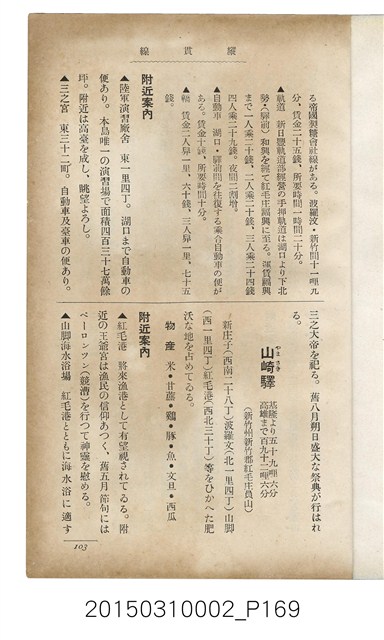 縱貫線
る帝國製糖會社線がある。波羅汶・新竹間十一哩九
分、賃金二十五錢、所要時間一時間二十分。
▲軌道 新日豐軌道部經營の手押軌道は湖口より下北
勢・驛前)和興を經て紅毛庄福興に至る。運賃福興
まで一人乘二十錢、二人乘二十二錢、三人乘二十四錢
四人乘二十九錢。夜間二割增。
▲自動車 湖口・驛前間を往復する乘合自動車の便が
ある。賃金十錢、所要時間十分。
▲轎 賃金二人舁一里、六十錢、三人舁一里、七十五
錢。
附近案內
▲陸軍演習廠舍 東一里四丁。湖口まで自動車の
便あり。本島唯一の演習場で面積四百三十七萬餘
坪。附近は高臺を成し、眺望よろし。
▲三之宮 東三十二町。自動車及臺車の便あり。
三之大帝を祀る。舊八月朔日盛大な祭典が行はれ
る。
山崎驛
やまさき
基隆より五十九哩六分
高雄まで百九十二哩六分
(新竹州新竹郡紅毛庄員山)
新庄子(西南二十八丁)波羅文(北一里四丁)山脚
(西一里四丁)紅毛港(西北三十丁)等をひかへた肥
沃な地を占めてゐる。
物產 米・甘蔗・鷄・豚・魚・文旦・西瓜
附近案內
▲紅毛港 將來漁港として有望視されてゐる。附
近の王爺宮は漁民の信仰あつく、舊五月節句には
ペーロンツン(競漕)を行つて神靈を慰める。
▲山脚海水浴場 紅毛港とともに海水浴に適す
103
20150310002_P169